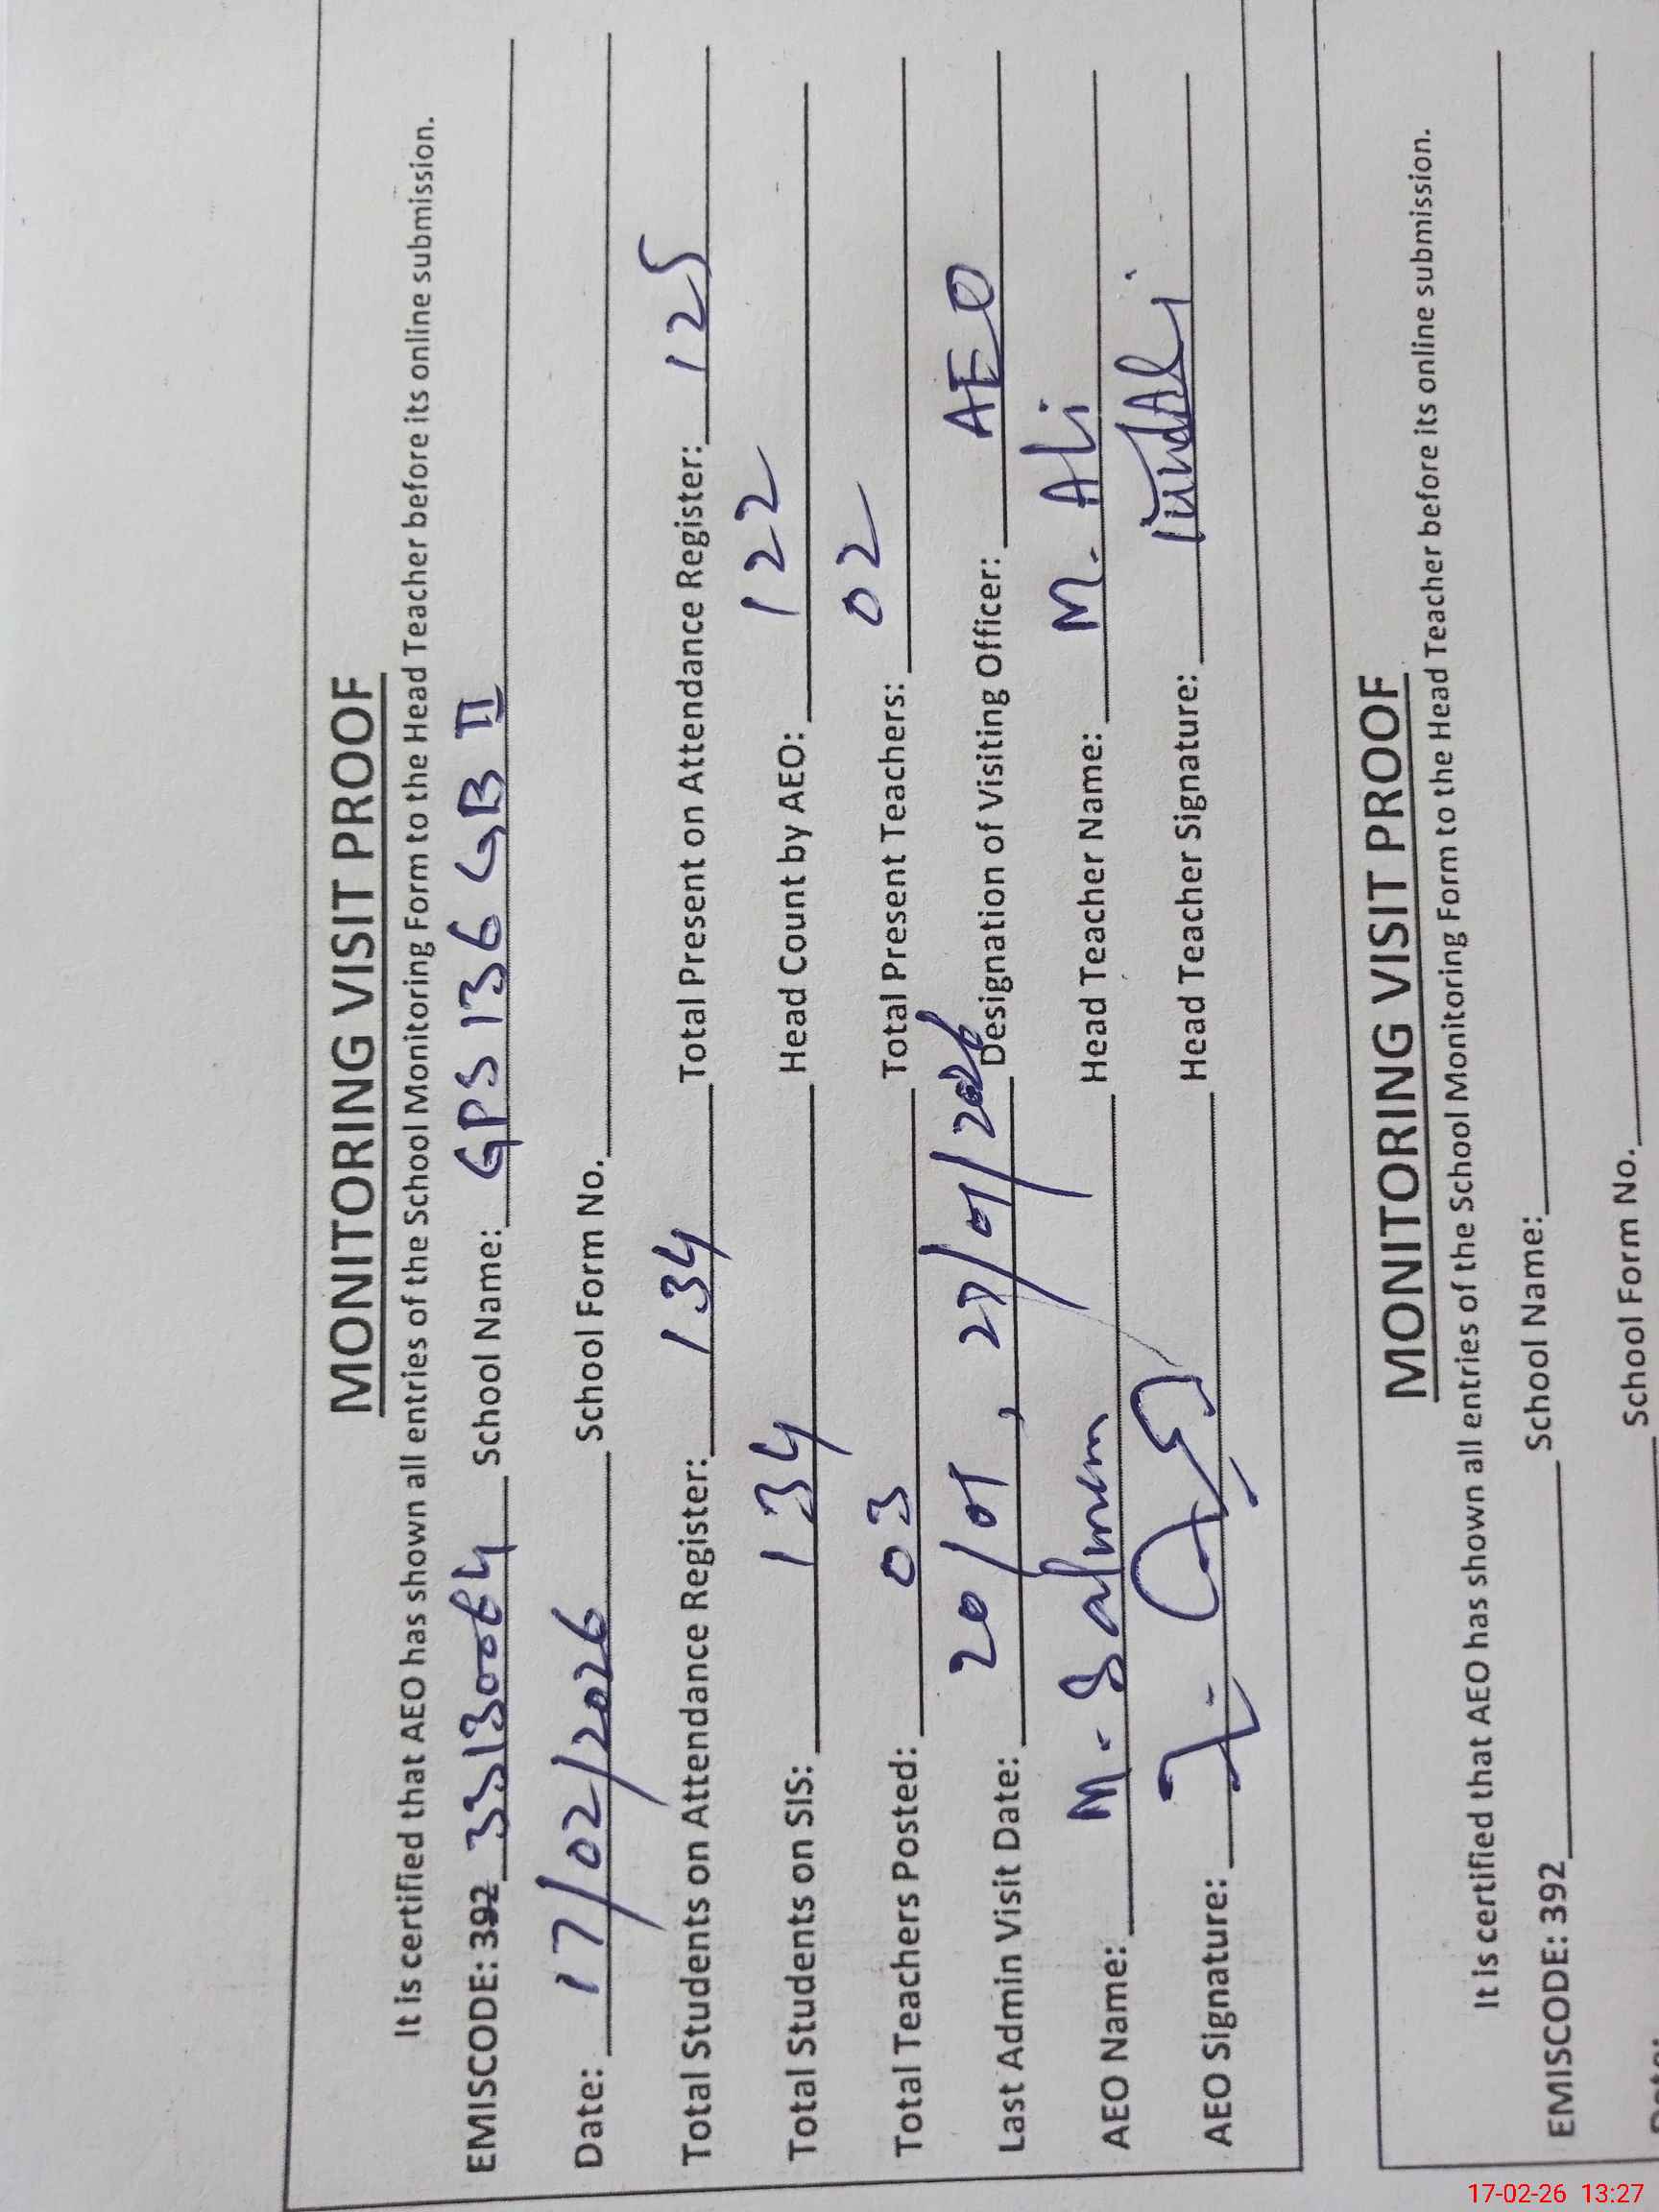 MONITORING VISIT PROOF
It is certified that AEO has shown all entries of the School Monitoring Form to the Head Teacher before its online submission.
EMISCODE: 392 33130064 School Name: GPS 136 GB II
Date: 17/02/2026 School Form No.
Total Students on Attendance Register: 134 Total Present on Attendance Register: 125
Total Students on SIS: 134 Head Count by AEO: 122
Total Teachers Posted: 03 Total Present Teachers: 02
Last Admin Visit Date: 20/01, 27/01/2026 Designation of Visiting Officer: AEO
AEO Name: M. Salmem Head Teacher Name: M. Ali
AEO Signature: Head Teacher Signature:
MONITORING VISIT PROOF
It is certified that AEO has shown all entries of the School Monitoring Form to the Head Teacher before its online submission.
EMISCODE: 392 School Name:
School Form No.
17-02-26 13:27